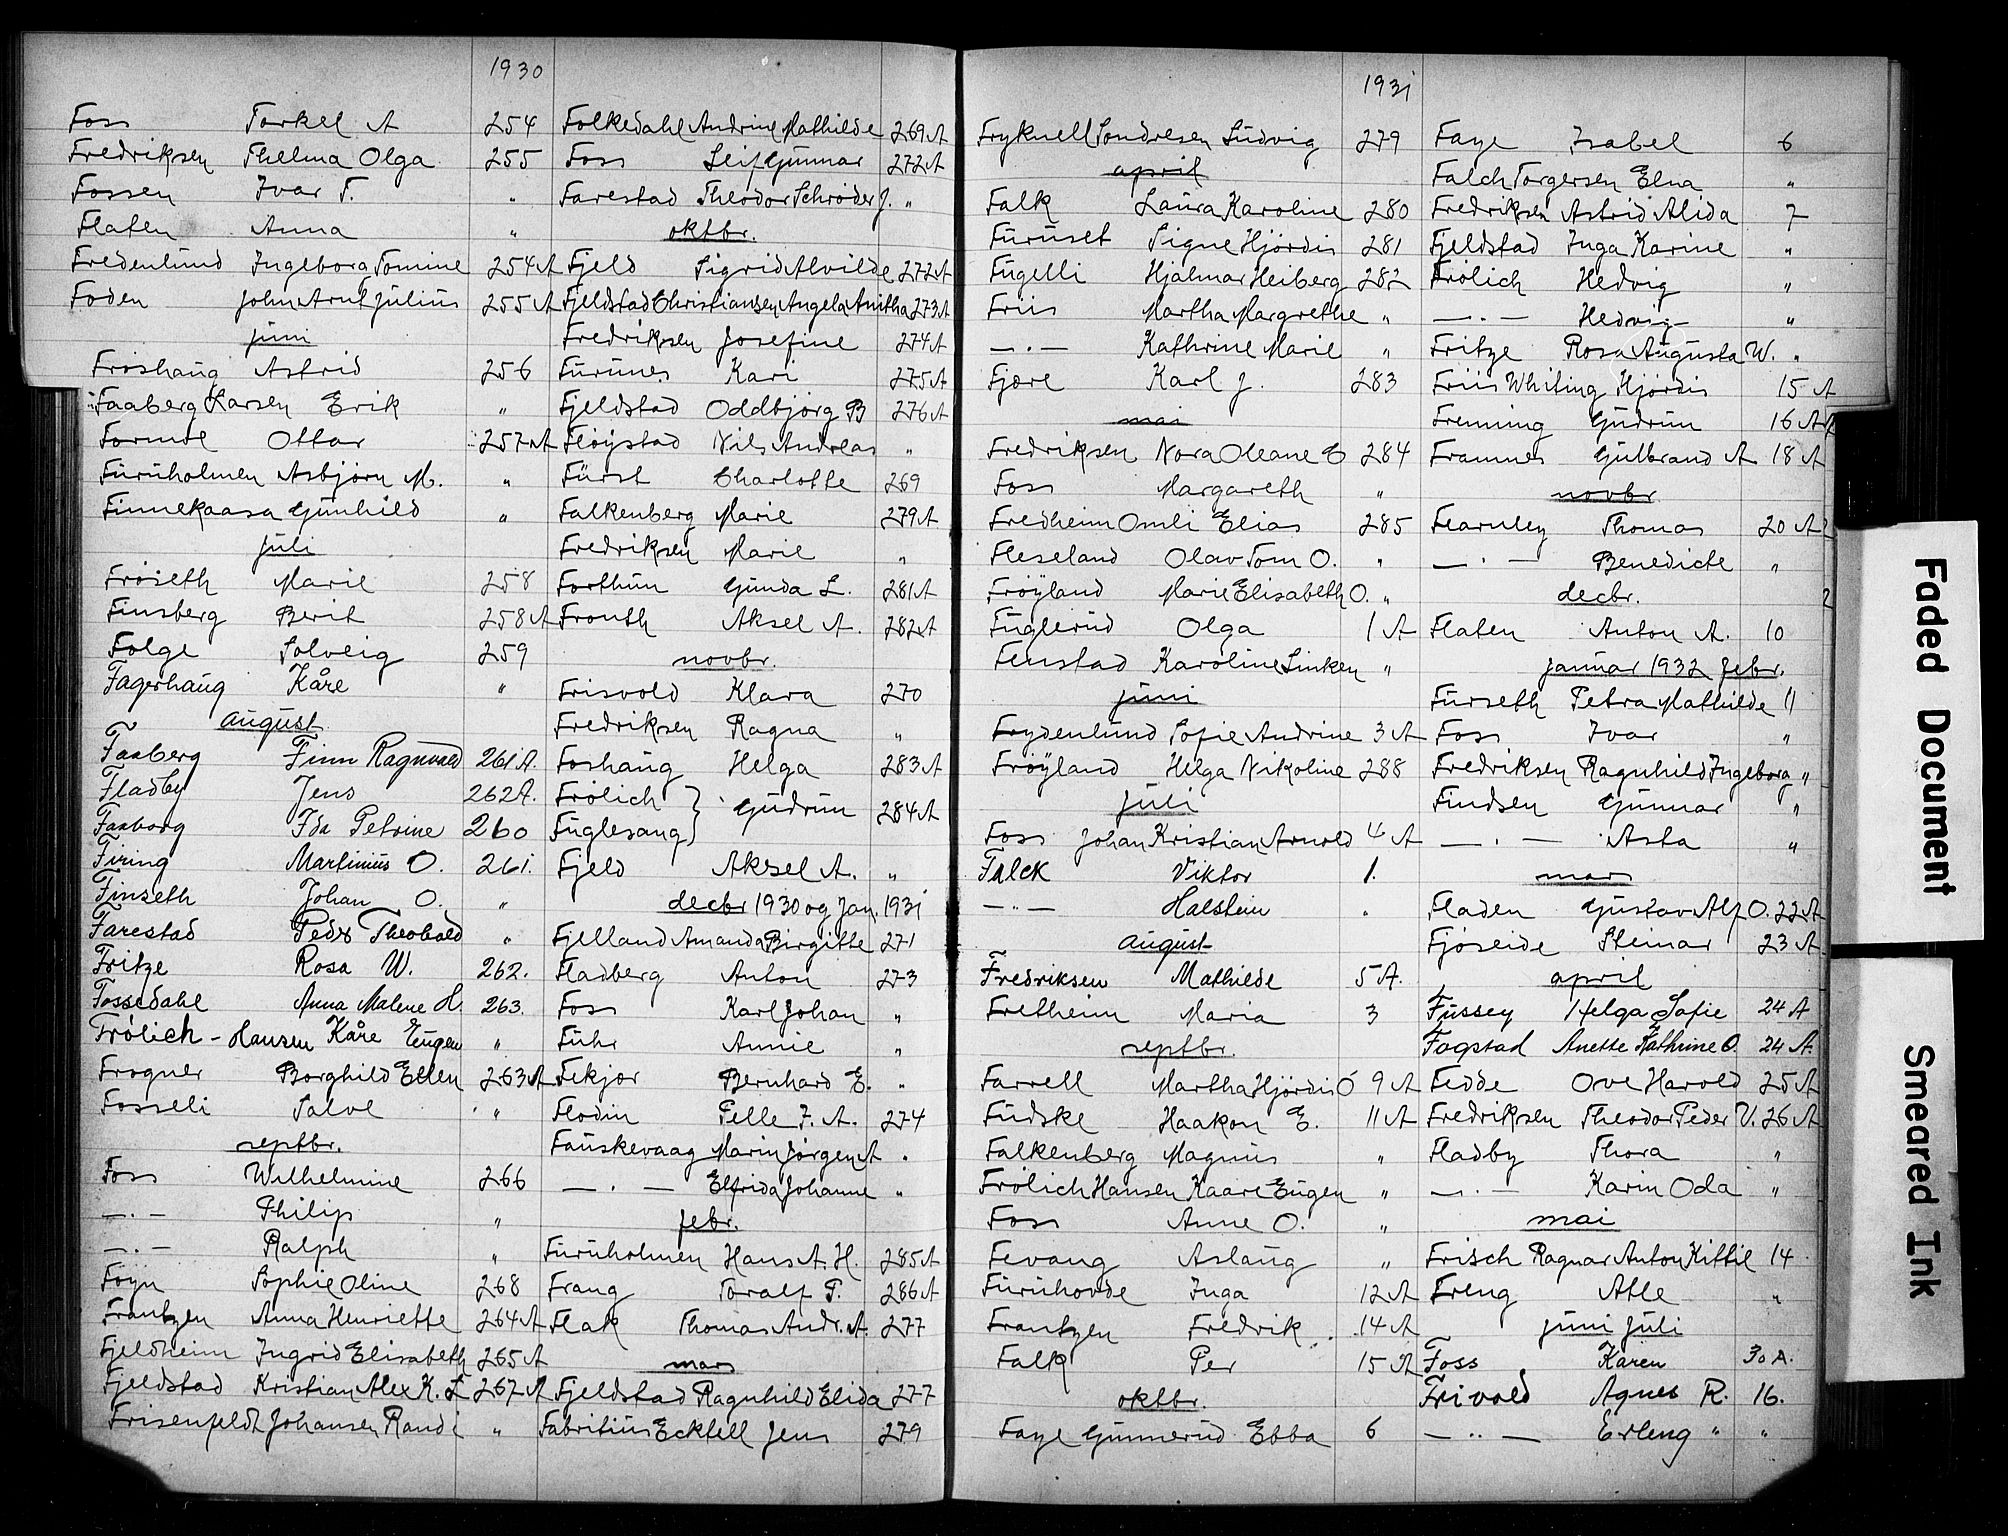 1930
Foss Torkel A 254
Fredriksen Thelma Olga 255
Fossen Ivar F. "
Flaten Anna "
Fredenlund Ingeborg Tomine 254 A
Foden John Arnt Julius 255 A
juni
Froshaug Astrid 256
Faaberg Larsen Erik "
Formoe Ottar 257 A
Furuholmen Asbjørn M. "
Finnekaasa Gunhild "
juli
Frøseth Marie 258
Finsberg Berit 258 A
Folge Solveig 259
Fagerhaug Kåre "
august
Faaberg Finn Ragnvald 261 A.
Fladby Jens 262 A.
Faaborg Ida Petrine 260
Firing Martinius O. 261.
Finseth Johan O. "
Farestad Peder Theobald "
Fritze Rosa W. 262.
Fossedahl Anna Malene H. 263.
Frølich - Hansen Kåre Eugen "
Frogner Borghild Ellen 263 A
Fosseli Salve "
septbr.
Foss Wilhelmine 266
—.— Philip "
—.— Ralph "
Føyn Sophie Oline 268
Frantzen Anna Henriette 264 A
Fjeldheim Ingrid Elisabeth 265 A
Fjeldstad Kristian Alex K. L 267 A
Frisenfeldt Johansen Randi "
Folkedahl Andrine Mathilde 269 A
Foss Leif Gunnar 272 A
Farestad Theodor Schrøder J. "
oktbr.
Fjeld Sigrid Alvilde 272 A
Fjeldstad Christiansen Angela Anitha 273 A
Fredriksen Josefine 274 A
Furunes Kari 275 A
Fjeldstad Oddbjörg B 276 A
Fløystad Nils Andreas "
Fürst Charlotte 269
Falkenberg Marie 279 A
Fredriksen Marie "
Forthun Gunda L. 281 A
Fronth Aksel A. 282 A
novbr.
Frisvold Klara 270
Fredriksen Ragna "
Foshaug Helga 283 A
Frølich } Gudrun 284 A
Fuglesang }
Fjeld Aksel A. "
decbr 1930 og jan. 1931
Fjelland Amanda Birgitte 271
Fladberg Anton 273
Foss Karl Johan "
Führ Annie "
Fekjær Bernhard E. "
Flodin Pelle F. A. 274
Fauskevaag Marin Jørgen A "
—.— Elfrida Johanne "
febr.
Furuholmen Hans A. H. 285 A
Frang Toralf P. 286 A
Flak Thomas Andr. A. 277
mars
Fjeldstad Ragnhild Elida 277
Fabritius Ecktell Jens 279
1931
Fryknell Sondresen Ludvig 279
april
Falk Laura Karoline 280
Furuset Signe Hjördis 281
Fugelli Hjalmar Heiberg 282
Friis Martha Margrethe "
—.— Kathrine Marie "
Fjære Karl J. 283
mai
Fredriksen Nora Oleane E 284
Foss Margareth "
Fredheim Omli Elias 285
Fleseland Olav Tom O. "
Frøyland Marie Elisabeth O. "
Fuglerud Olga 1 A
Fenstad Karoline Linken "
juni
Frydenlund Sofie Andrine 3 A
Frøyland Helga Nikoline 288
juli
Foss Johan Kristian Arnold 4 A
Falck Viktor 1.
—..— Halstein "
august
Fredriksen Mathilde 5 A.
Fretheim Maria 3
septbr.
Farrell Martha Hjördis O 9 A
Fudske Haakon E. 11 A
Falkenberg Magnus "
Frølich Hansen Kaare Eugen "
Foss Anne O. "
Fevang Aslaug "
Furuhovde Inga 12 A
Frantzen Fredrik 14 A
Falk Per 15 A
oktbr.
Faye Gunnerud Ebba 6
Faye Isabel 6
Falch Torgersen Elna "
Fredriksen Astrid Alida 7
Fjeldstad Inga Karine "
Frølich Hedvig "
—.— Hedvig "
Fritze Rosa Augusta W. "
Friis Whiting Hjördis 15 A
Frenning Gudrun 16 A
Framnes Gulbrand A 18 A
novbr
Fearnley Thomas 20 A
—.— Benedicte "
decbr.
Flaten Anton A. 10
januar 1932 febr.
Furseth Petra Mathilde 11
Foss Ivar "
Fredriksen Ragnhild Ingeborg "
Findsen Gunnar "
—.— Asta "
mars
Fladen Gustav Alf O. 22 A
Fjøseide Steinar 23 A
april
Fussey Helga Sofie 24 A
Fogstad Anette Kathrine O. 24 A.
Fedde Ove Harold 25 A
Fredriksen Theodor Peder V. 26 A
Fladby Thora "
—.— Karin Oda "
mai
Frisch Ragnar Anton Kittil 14
Freng Atle "
juni juli
Foss Karen 30 A.
Freivold Agnes R. 16.
—..— Erling " "
Faded Document
Smeared Ink